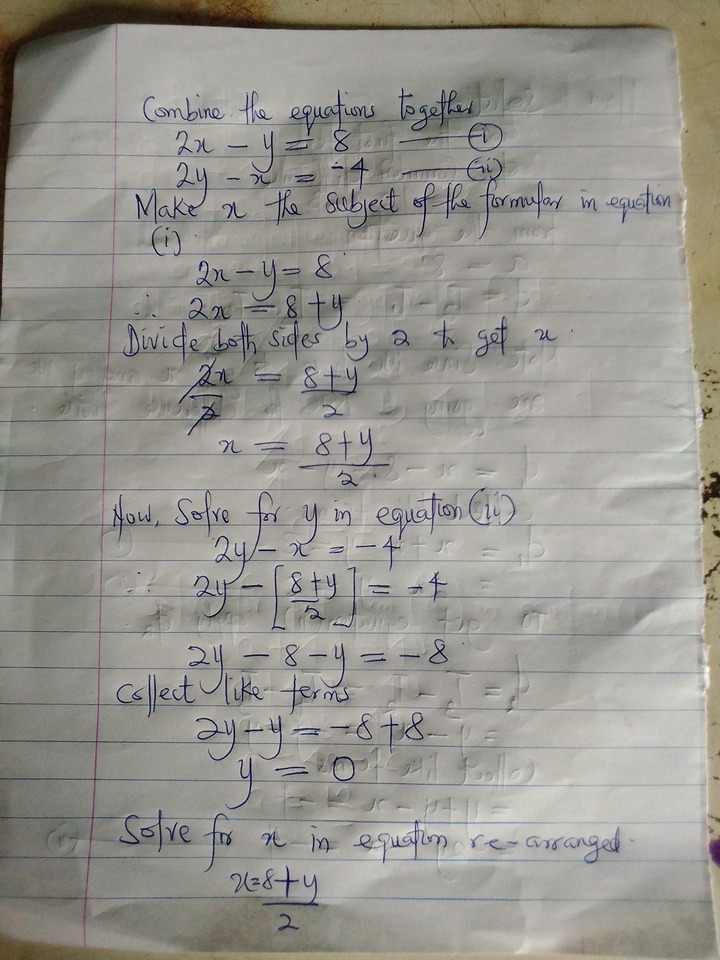 Combine the equations together
2x - y = 8 —— (i)
2y - x = -4 —— (ii)
Make x the subject of the formular in equation
(i)
2x - y = 8
∴ 2x = 8 + y
Divide both sides by 2 to get x.
2x/2 = 8+y/2
x = 8+y/2
Now, Solve for y in equation (ii)
2y - x = -4
∴ 2y - [8+y/2] = -4
2y - 8 - y = -8
Collect like terms
2y - y = -8 + 8
y = 0
Solve for x in equation re-arranged.
x = 8+y/2